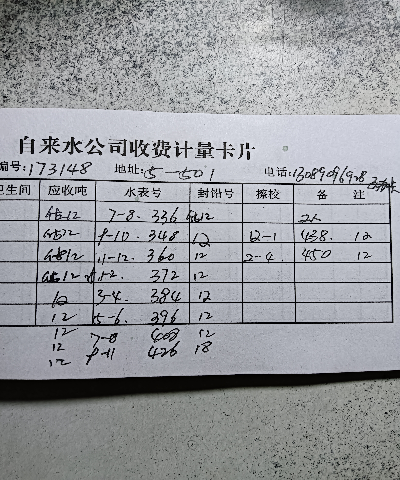 自来水公司收费计量卡片
编号:173148 地址:5-501 电话:13089096928
卫生间 应收吨 水表号 封铅号 擦校 备 注
12 7-8. 336 12 2人
12 9-10. 348 12 12-1 438. 12
12 11-12. 360 12 2-4. 450 12
12 1-2. 372 12
12 3-4. 384 12
12 5-6. 396 12
12 7-8 408 12
12 9-11 426 18
12